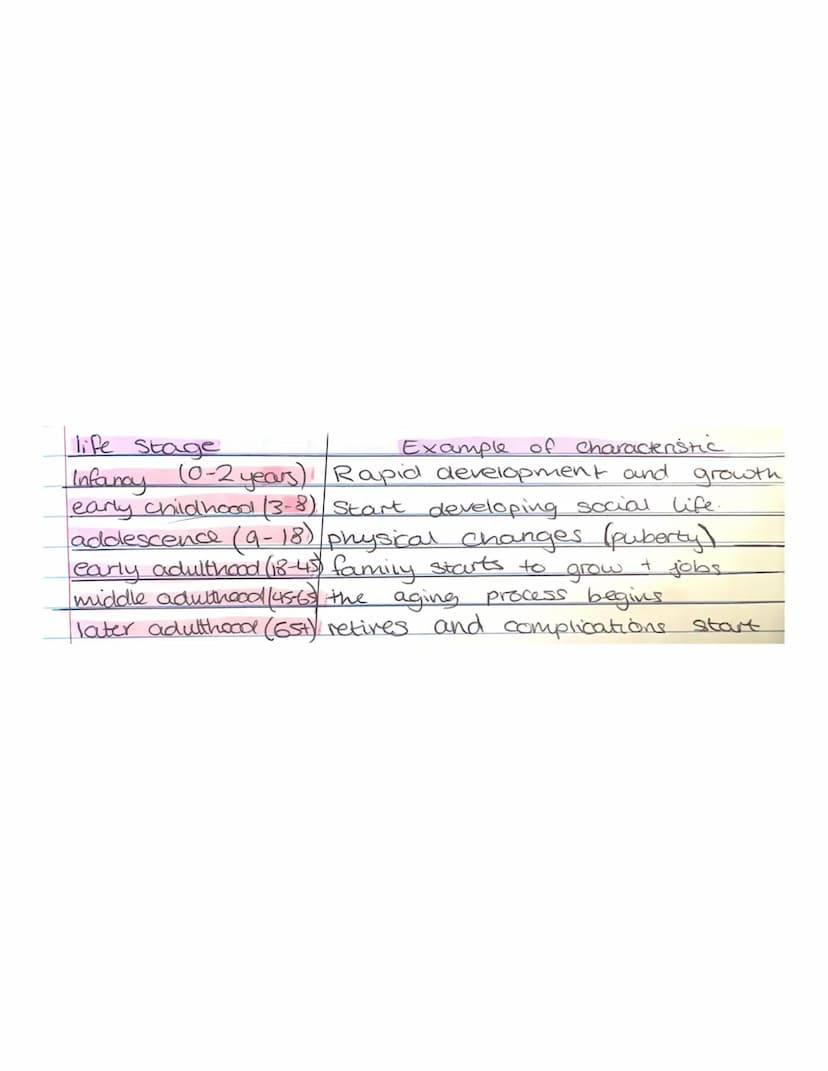 life stage Example of characteristic
Infancy (0-2 years) Rapid development and growth
early childhood (3-8) Start developing social life.
addescence (9-18) physical changes (puberty)
early adulthood (18-45) family starts to grow + jobs
middle adulthood (45-65) the aging process begins
later adulthood (65+) retires and complications start